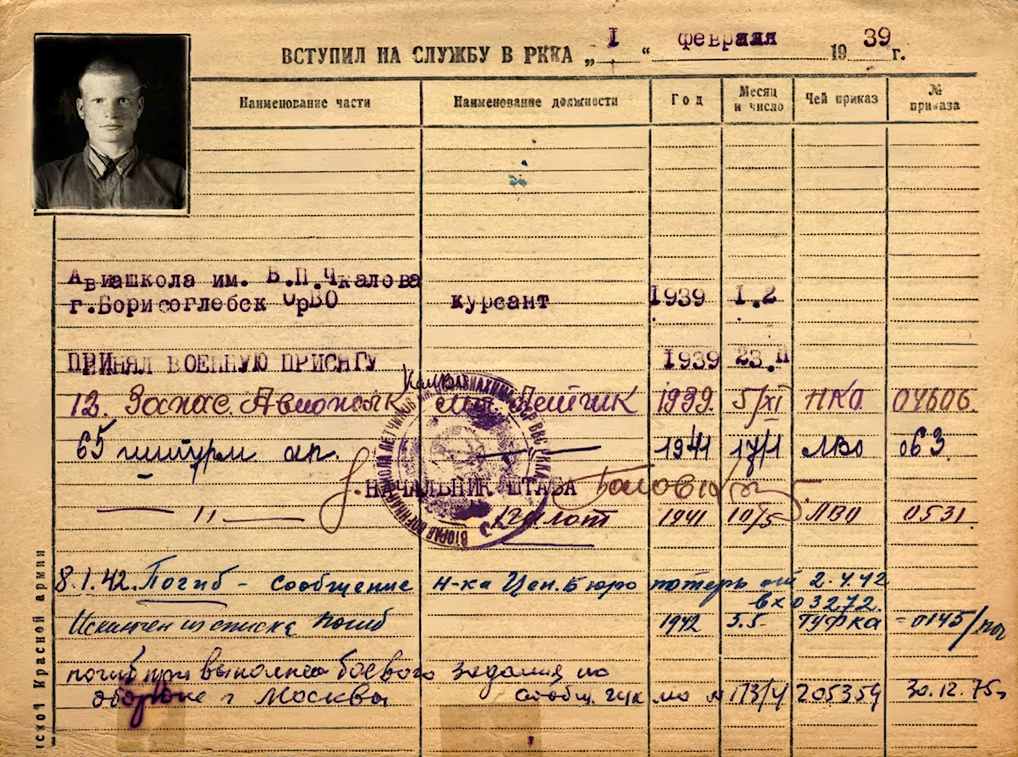 ВСТУПИЛ НА СЛУЖБУ В РККА „ I “ февраля 1939 г.
Наименование части Наименование должности Год Месяц и число Чей приказ № приказа
Авиашкола им. В.П.Чкалова
г.Борисоглебск ОрВО курсант 1939 I.2
ПРИНЯЛ ВОЕННУЮ ПРИСЯГУ 1939 23.II
12. Запас. Авиополк Мл. Летчик 1939. 5/XI НКО 04606.
65 штурм ап. — 1941 17/1 ЛВО 063
НАЧАЛЬНИК ШТАБА
— 11 — 1941 10/5 ЛВО 0531
8.1.42. Погиб - сообщение н-ка Цен. Бюро потерь от 2.4.42
вх 03272.
Исключен из списка погиб 1942 5.5 ГУФКА - 0145/
погиб при выполнен боевого задания по
обороне г Москвы сообщ. гук мо № 173/4/205359 30.12.75г
ской Красной армии